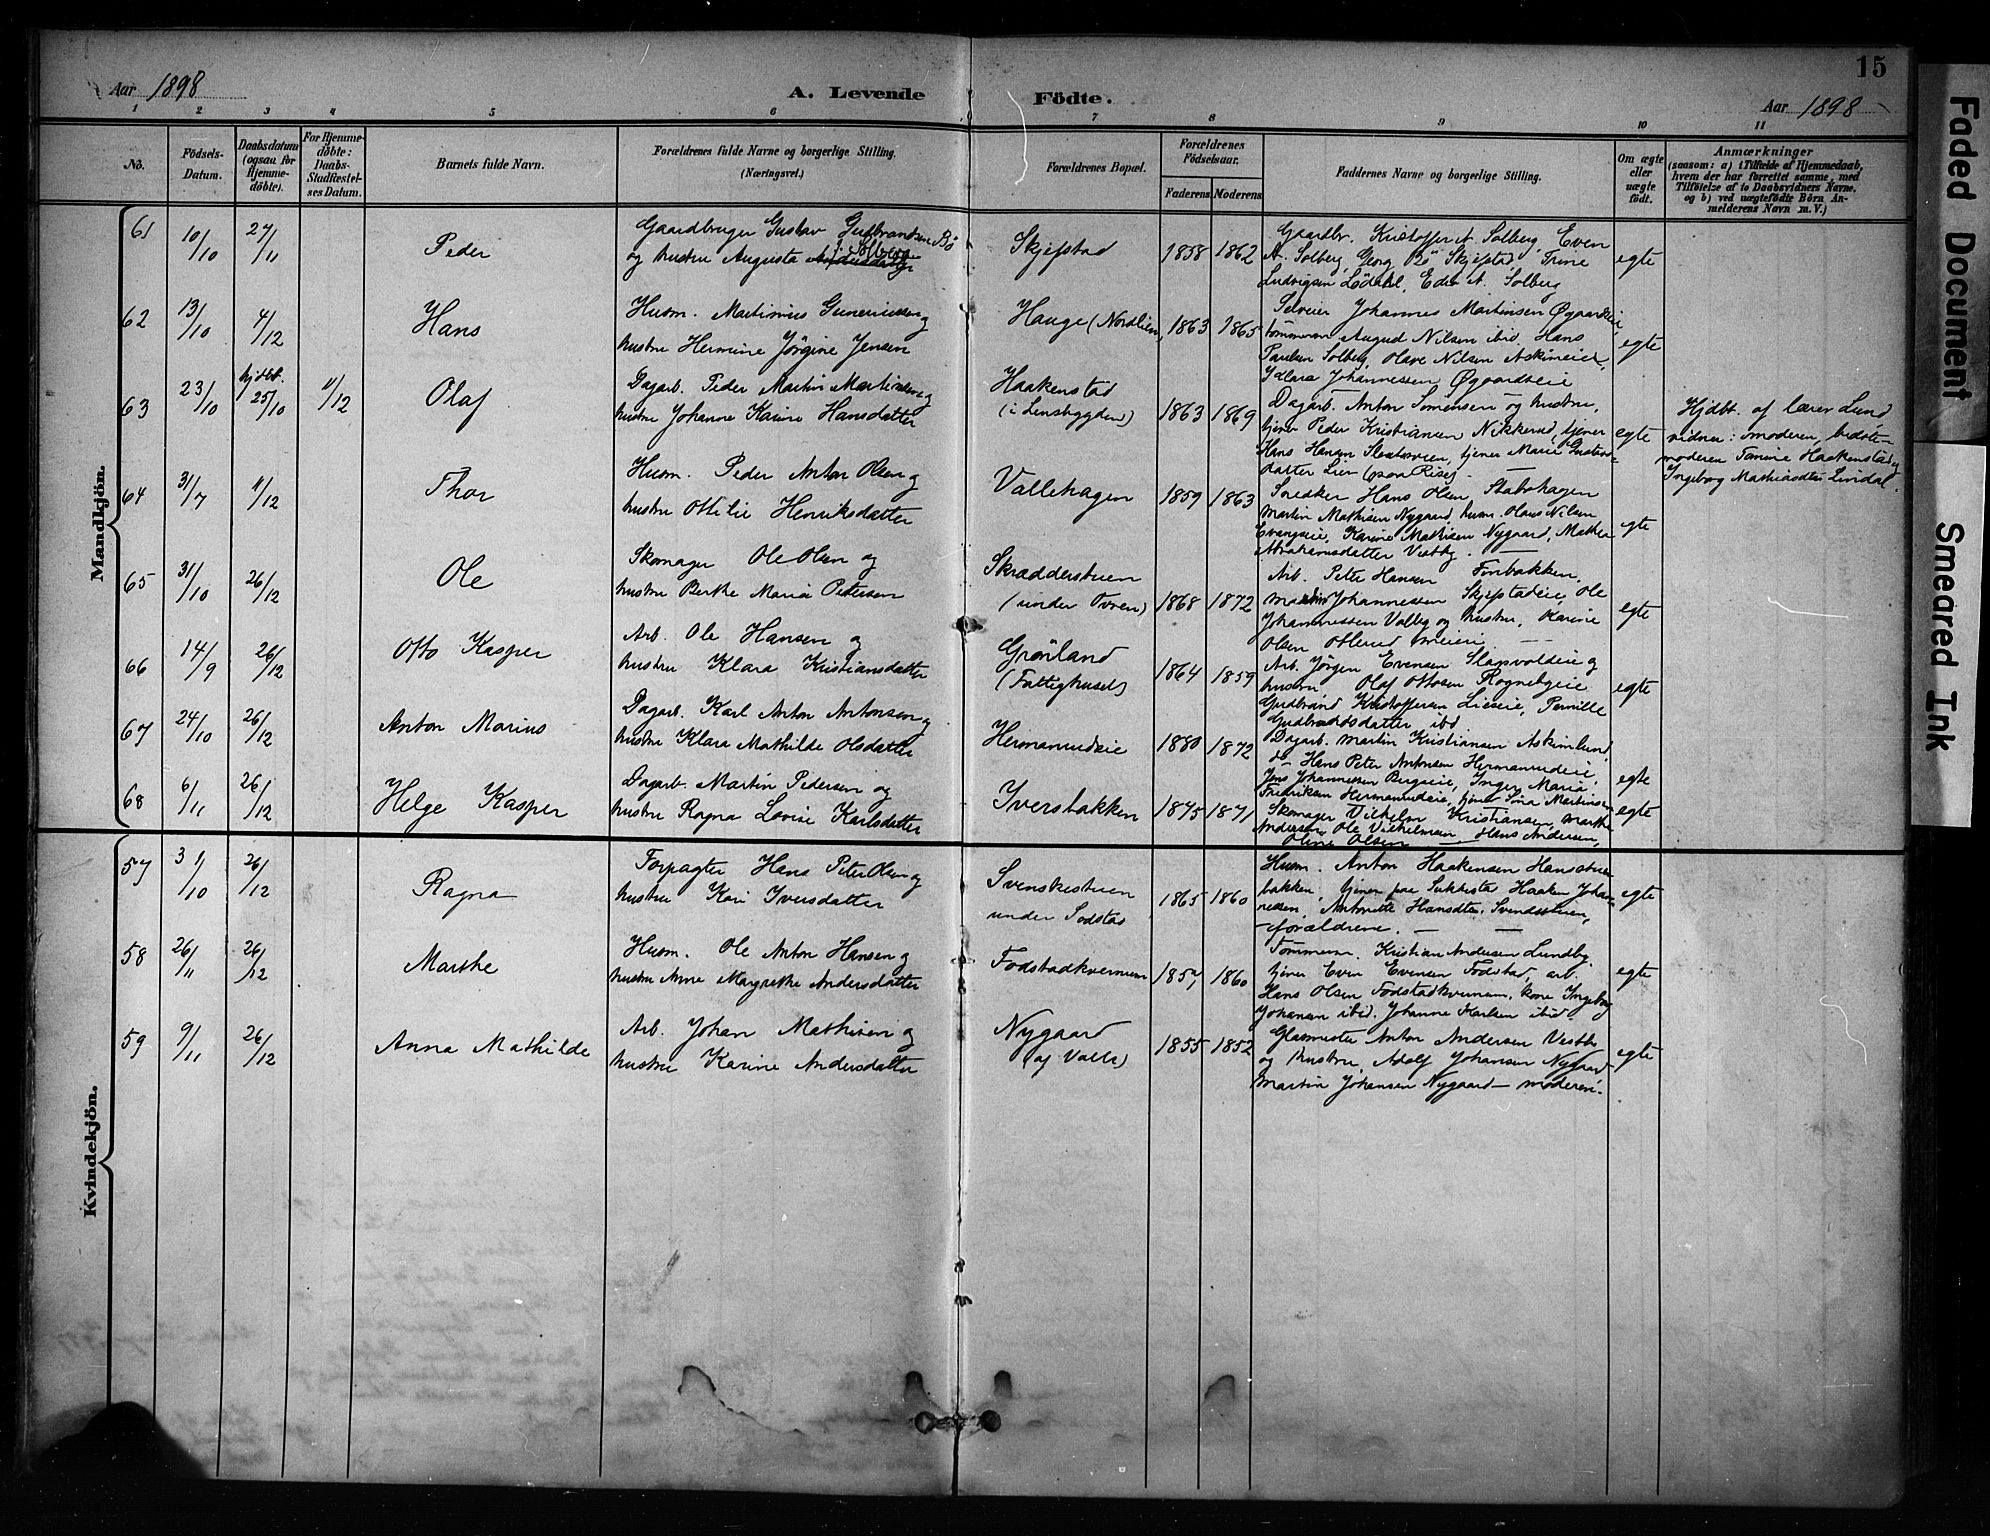 15
Aar 1898
A. Levende Födte.
Aar 1898
1 2 3 4 5 6 7 8 9 10 11
No.
Födsels-Datum.
Daabsdatum (ogsaa for Hjemme-döbte).
For Hjemme-döbte: Daabs-Stadfæstel-ses Datum.
Barnets fulde Navn.
Forældrenes fulde Navne og borgerlige Stilling. (Næringsvei.)
Forældrenes Bopæl.
Forældrenes Födselsaar.
Faderens
Moderens
Faddernes Navne og borgerlige Stilling.
Om ægte eller uægte födt.
Anmærkninger
(saasom: a) i Tilfælde af Hjemmedaab, hvem der har forrettet samme, med Tilföielse af to Daabsvidners Navne, og b) ved uægtefödte Börn Anmelderens Navn m. V.)
Mandkjön.
61 10/10 27/11 Peder
Gaardbruger Gustav Gulbrandsen Bö
og hustru Augusta Solberg
Skjefstad 1858 1862
Gaardbr. Kristoffer A. Solberg, Even
A. Solberg, Georg Bö Skjefstad, Trine
Ludvigsen Lödahl, Eden A. Solberg
egte
62 13/10 4/12 Hans
Husm. Martinius Gunerius og
hustru Hermine Jörgine Jensen
Hauge (Nordlien) 1863 1865
Selveier Johannes Martinsen Øgaardeie,
tömmerm. August Nilsen ibid, Hans
Paulsen Solberg, Olave Nilsen Askimeiet,
Klara Johannessen Øgaardseie
egte
63 23/10 hjdbt. 25/10 11/12 Olaf
Dagarb. Peder Martin Martinsen og
hustru Johanne Karine Hansdatter
Haakenstad
(i Lensbygden) 1863 1869
Dagarb. Anton Simensen og hustru,
tjener Peder Kristiansen Nikkerud, tjener
Hans Hansen, tjener Marie Gustavs-
datter Lier (paa Rise)
egte
Hjdbt. af lærer Lund
vidner: moderen, bedste-
moderen Tomine Haakenstad og
Ingeborg Mathiasdtr Lindal.
64 31/7 11/12 Thor
Husm. Peder Anton Olsen og
hustru Ottilie Henriksdatter
Vallehagen 1859 1863
Snedker Hans Olsen Stabohagen
Martin Mathisen Nygaard, husm. Olaus Nilsen
Evangseie, Karine Mathisen Nygaard, Mathea
Abrahamsdatter Vestby.
egte
65 31/10 26/12 Ole
Skomager Ole Olsen og
hustru Berthe Maria Petersen
Skrædderstuen
(under Ovren) 1868 1872
Arb. Peter Hansen Finbakken,
Johannessen Skjefstadeie, Ole
Johannessen Valby og hustru, Karine
Olsen Ollerud meieri
egte
66 14/9 26/12 Otto Kasper
Arb. Ole Hansen og
hustru Klara Kristiansdatter
Grönland
(Fattighuset) 1864 1859
Arb. Jörgen Evensen Slapvoldeie og
hustru Olaf Ottosen Rognebyeie
Gudbrand Kristoffersen Lieseie, Pernille
Gudbrandsdatter ibd
egte
67 24/10 26/12 Anton Marius
Dagarb. Karl Anton Antonsen og
hustru Klara Mathilde Olsdatter
Hermanrudeie 1880 1872
Dagarb. Martin Kristiansen Askimlund,
do Hans Peter Antonsen Hermanrudeie,
Jens Johannessen Bergseie, Inger Maria
Fredriksen Hermanrudeie, tjener Sina Martinsen
egte
68 6/11 26/12 Helge Kasper
Dagarb. Martin Pedersen og
hustru Ragna Lovise Karlsdatter
Iversbakken 1875 1871
Skomager Vilhelm Kristiansen, Marthe
Andersen, Ole Vilhelmsen, Hans Andersen,
Oline Olsen
egte
Kvindekjön.
57 31/10 26/12 Ragna
Forpagter Hans Peter Olsen og
hustru Kari Iversdatter
Svenskestuen
under Sodstad 1865 1860
Husm. Anton Haakensen Hanstue
bakken, tjener paa Sukkestad Haaken Johan-
nessen, Antonette Hansdtr. Svendsstuen,
forældrene.
egte
58 26/11 26/12 Marthe
Husm. Ole Anton Hansen og
hustru Anne Margrethe Andersdatter
Fodstadkvernen 1857 1860
Tömmerm. Kristian Andersen Lundby,
tjener Even Evensen Fodstad, arb.
Hans Olsen Fodstadkvernen, kone Ingeborg
Johansen ibid. Johanne Karlsen ibid.
egte
59 9/11 26/12 Anna Mathilde
Arb. Johan Mathisen og
hustru Karine Andersdatter
Nygaard
(af Valle) 1855 1852
Glasmester Anton Andersen Vestbe
og hustru, Adolf Johansen Nygaard
Martin Johansen Nygaard – moderen.
egte
Faded Document
Smeared Ink